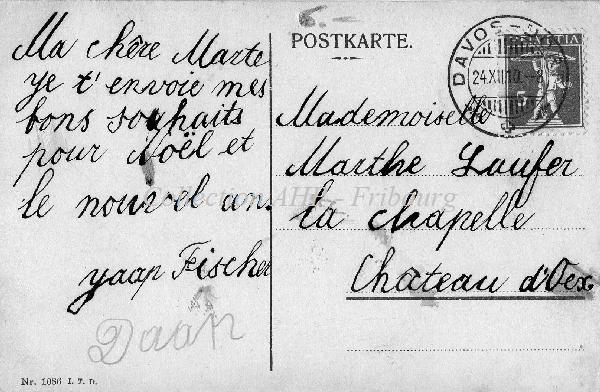 6.-
POSTKARTE.
DAVOS-
24.XII.10.-8
HELVETIA
5
Ma chère Marte
ye t'envoie mes
bons souhaits
pour Noël et
le nouvel an.
yaap Fischer
Daan
Mademoiselle
Marthe Laufer
la chapelle
Chateau d'Oex
Collection AHP - Fribourg
Nr. 1086 I. T. D.